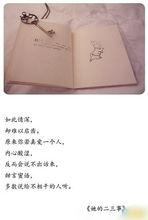 如此情深，
却难以启齿。
原来你若真爱一个人，
内心酸涩，
反而会说不出话来，
甜言蜜语，
多数说给不相干的人听。
《她的二三事》